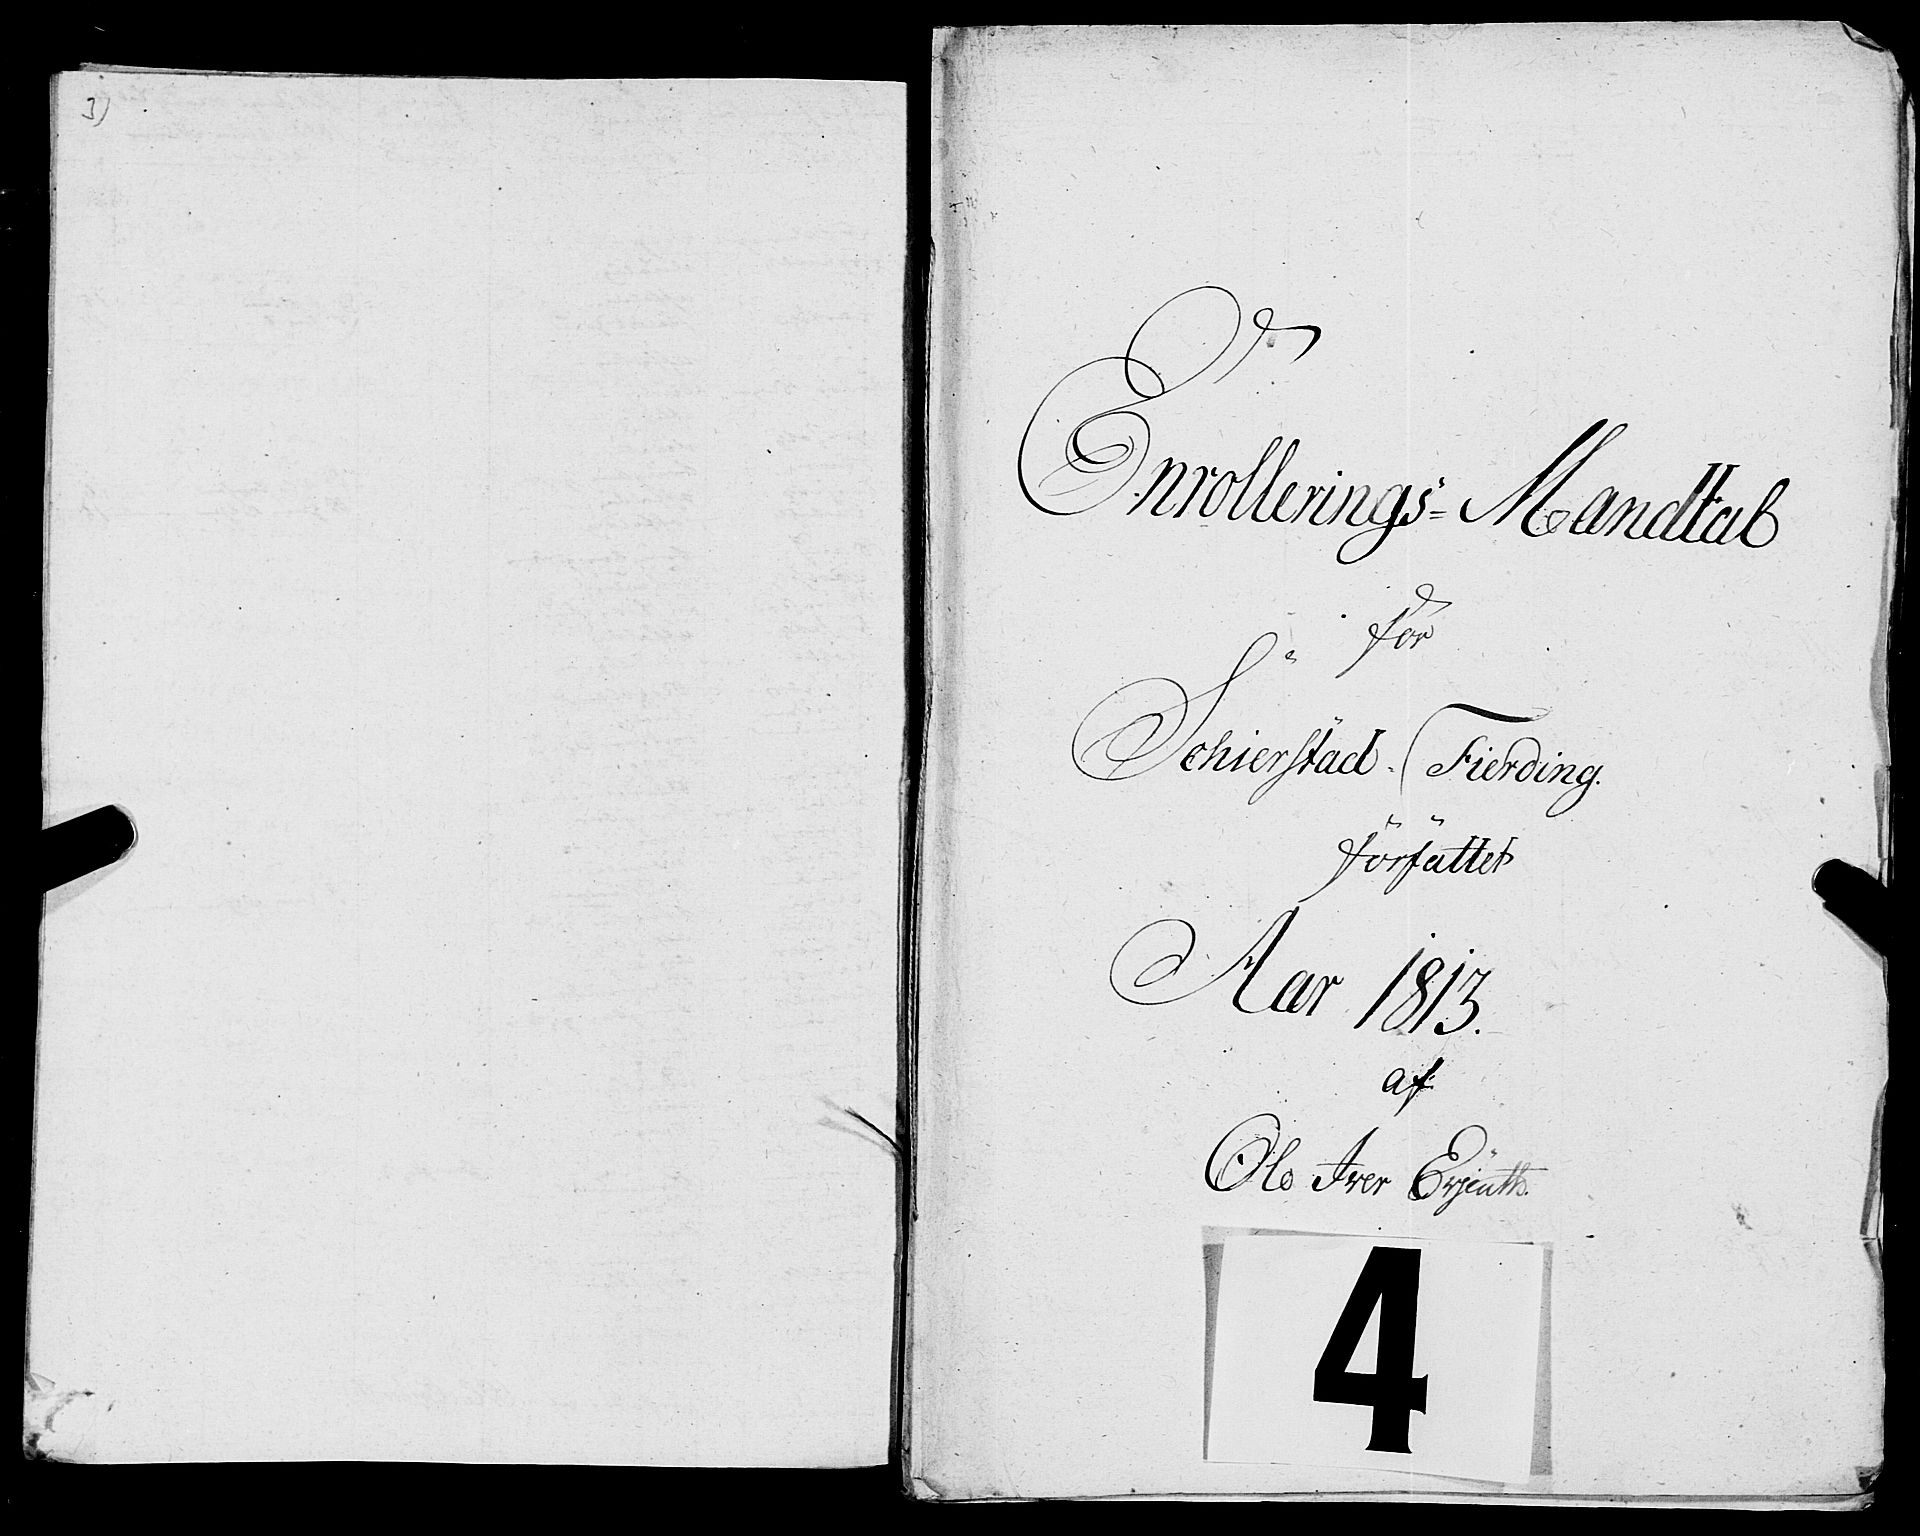 3)
Enrollerings= Mandtal
for
Schierstad. Fierding.
forfattet
Aar 1813.
af
Ole Iver
4